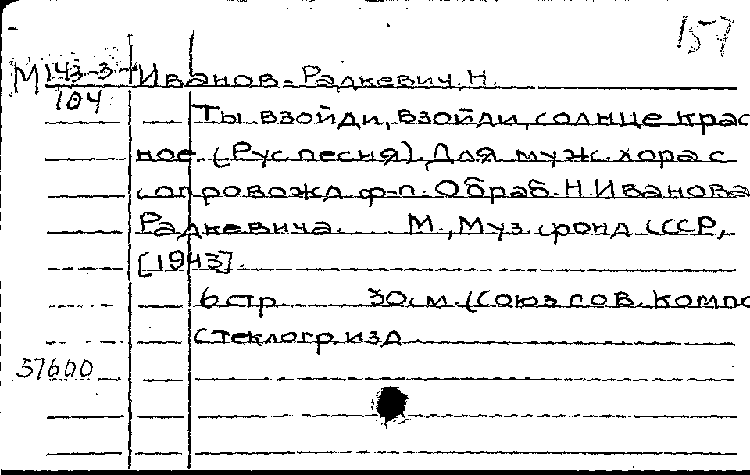 157
М 143-3 Иванов-Радкевич, Н.
104
Ты взойди, взойди, солнце крас
ное. (Рус песня). Для муж. хора с
сопровожд ф-п. Обраб. Н. Иванова
Радкевича. М., Муз. фонд СССР,
[1943].
6 стр 30 см. (Союз сов. компо
стеклогр. изд
37600